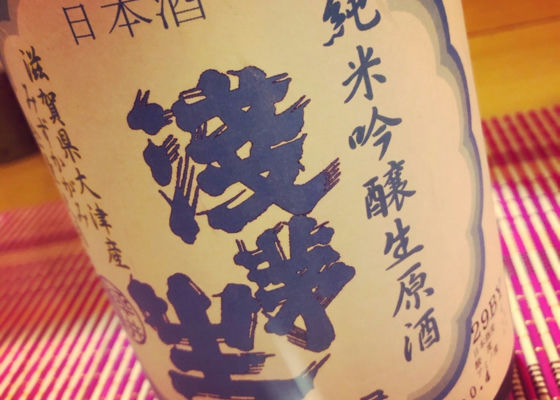 日本酒
純米吟醸生原酒
浅茅生
滋賀県大津産
みずかがみ
29BY